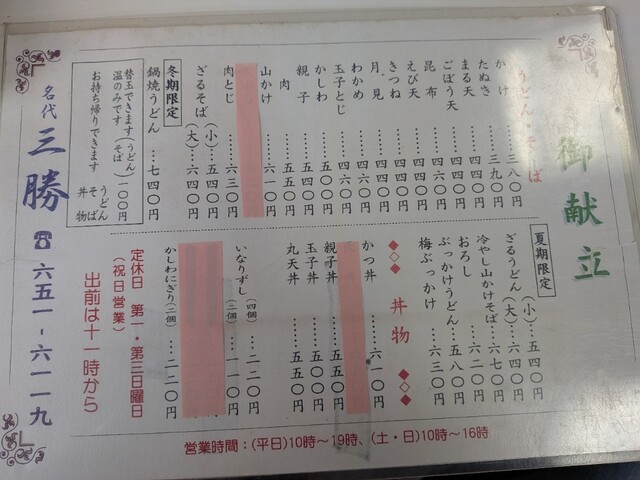 御献立
うどん・そば
かけ……三八〇円
たぬき……三九〇円
まる天……四四〇円
ごぼう天……四四〇円
昆布……四四〇円
えび天……四四〇円
きつね……四四〇円
月見……四四〇円
わかめ……四六〇円
玉子とじ……四六〇円
かしわ……五〇〇円
親子……五四〇円
肉……五五〇円
山かけ……六一〇円
肉とじ……六三〇円
ざるそば(小)…五四〇円
(大)…六四〇円
冬期限定
鍋焼うどん…七四〇円
替玉できます(うどん)一〇〇円
温のみです(そば)
お持ち帰りできます うどん そば 丼物
夏期限定
ざるうどん(小)…五四〇円
(大)…六四〇円
冷やし山かけそば…六七〇円
おろし……六二〇円
ぶっかけうどん…五八〇円
梅ぶっかけ…六三〇円
丼物
かつ丼……六一〇円
親子丼……五五〇円
玉子丼……五〇〇円
丸天丼……五五〇円
いなりずし(四個)…二二〇円
(二個)…一一〇円
かしわにぎり(二個)…二二〇円
定休日 第一・第三日曜日
(祝日営業)
出前は十一時から
名代 三勝 ☎六五一-六一一九
営業時間:(平日)10時〜19時、(土・日)10時〜16時